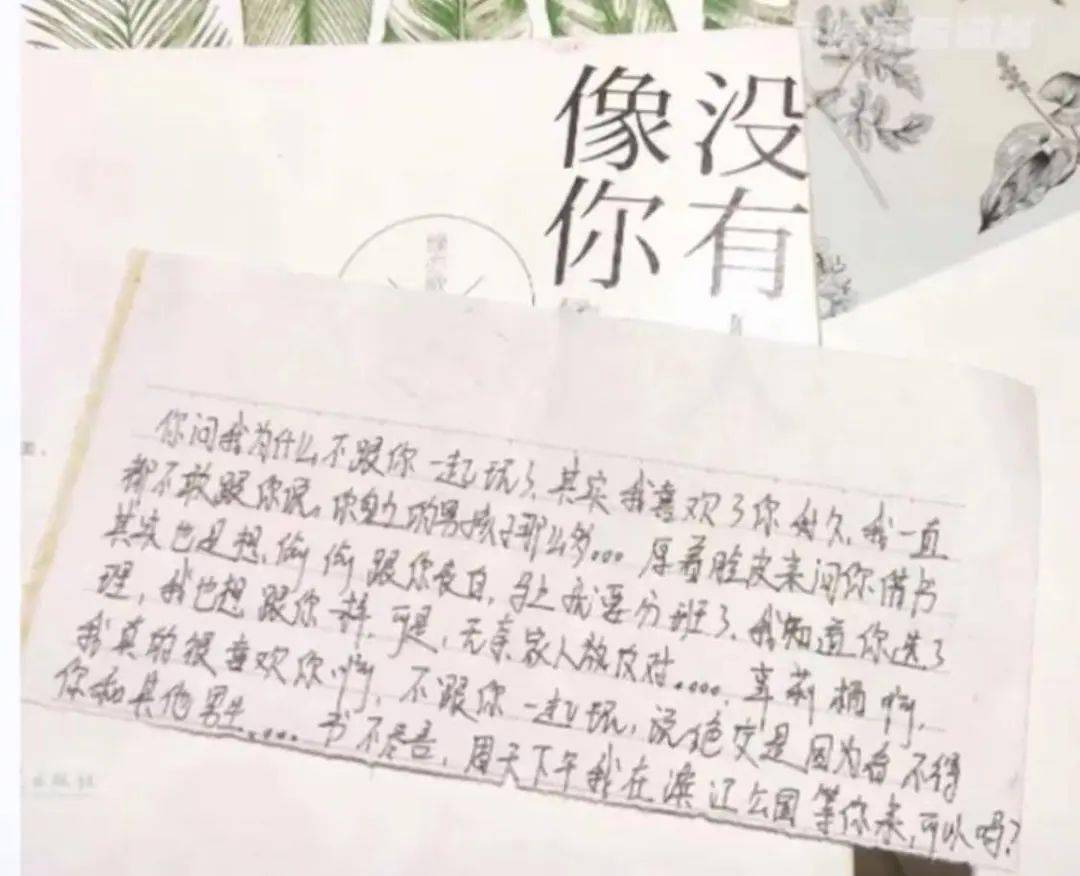 没有
像你
你问我为什么不跟你一起玩了,其实我喜欢了你好久,我一直
都不敢跟你说,你身边的男孩子那么多... 厚着脸皮来问你借书
其实也是想偷偷跟你表白,马上就要分班了,我知道你选了
理,我也想跟你一样,可是,无奈家人放反对....
啊,
我真的很喜欢你啊,不跟你一起玩,说绝交是因为看不得
你和其他男生.... 书不尽言,周天下午我在滨江公园等你来,可以吗?